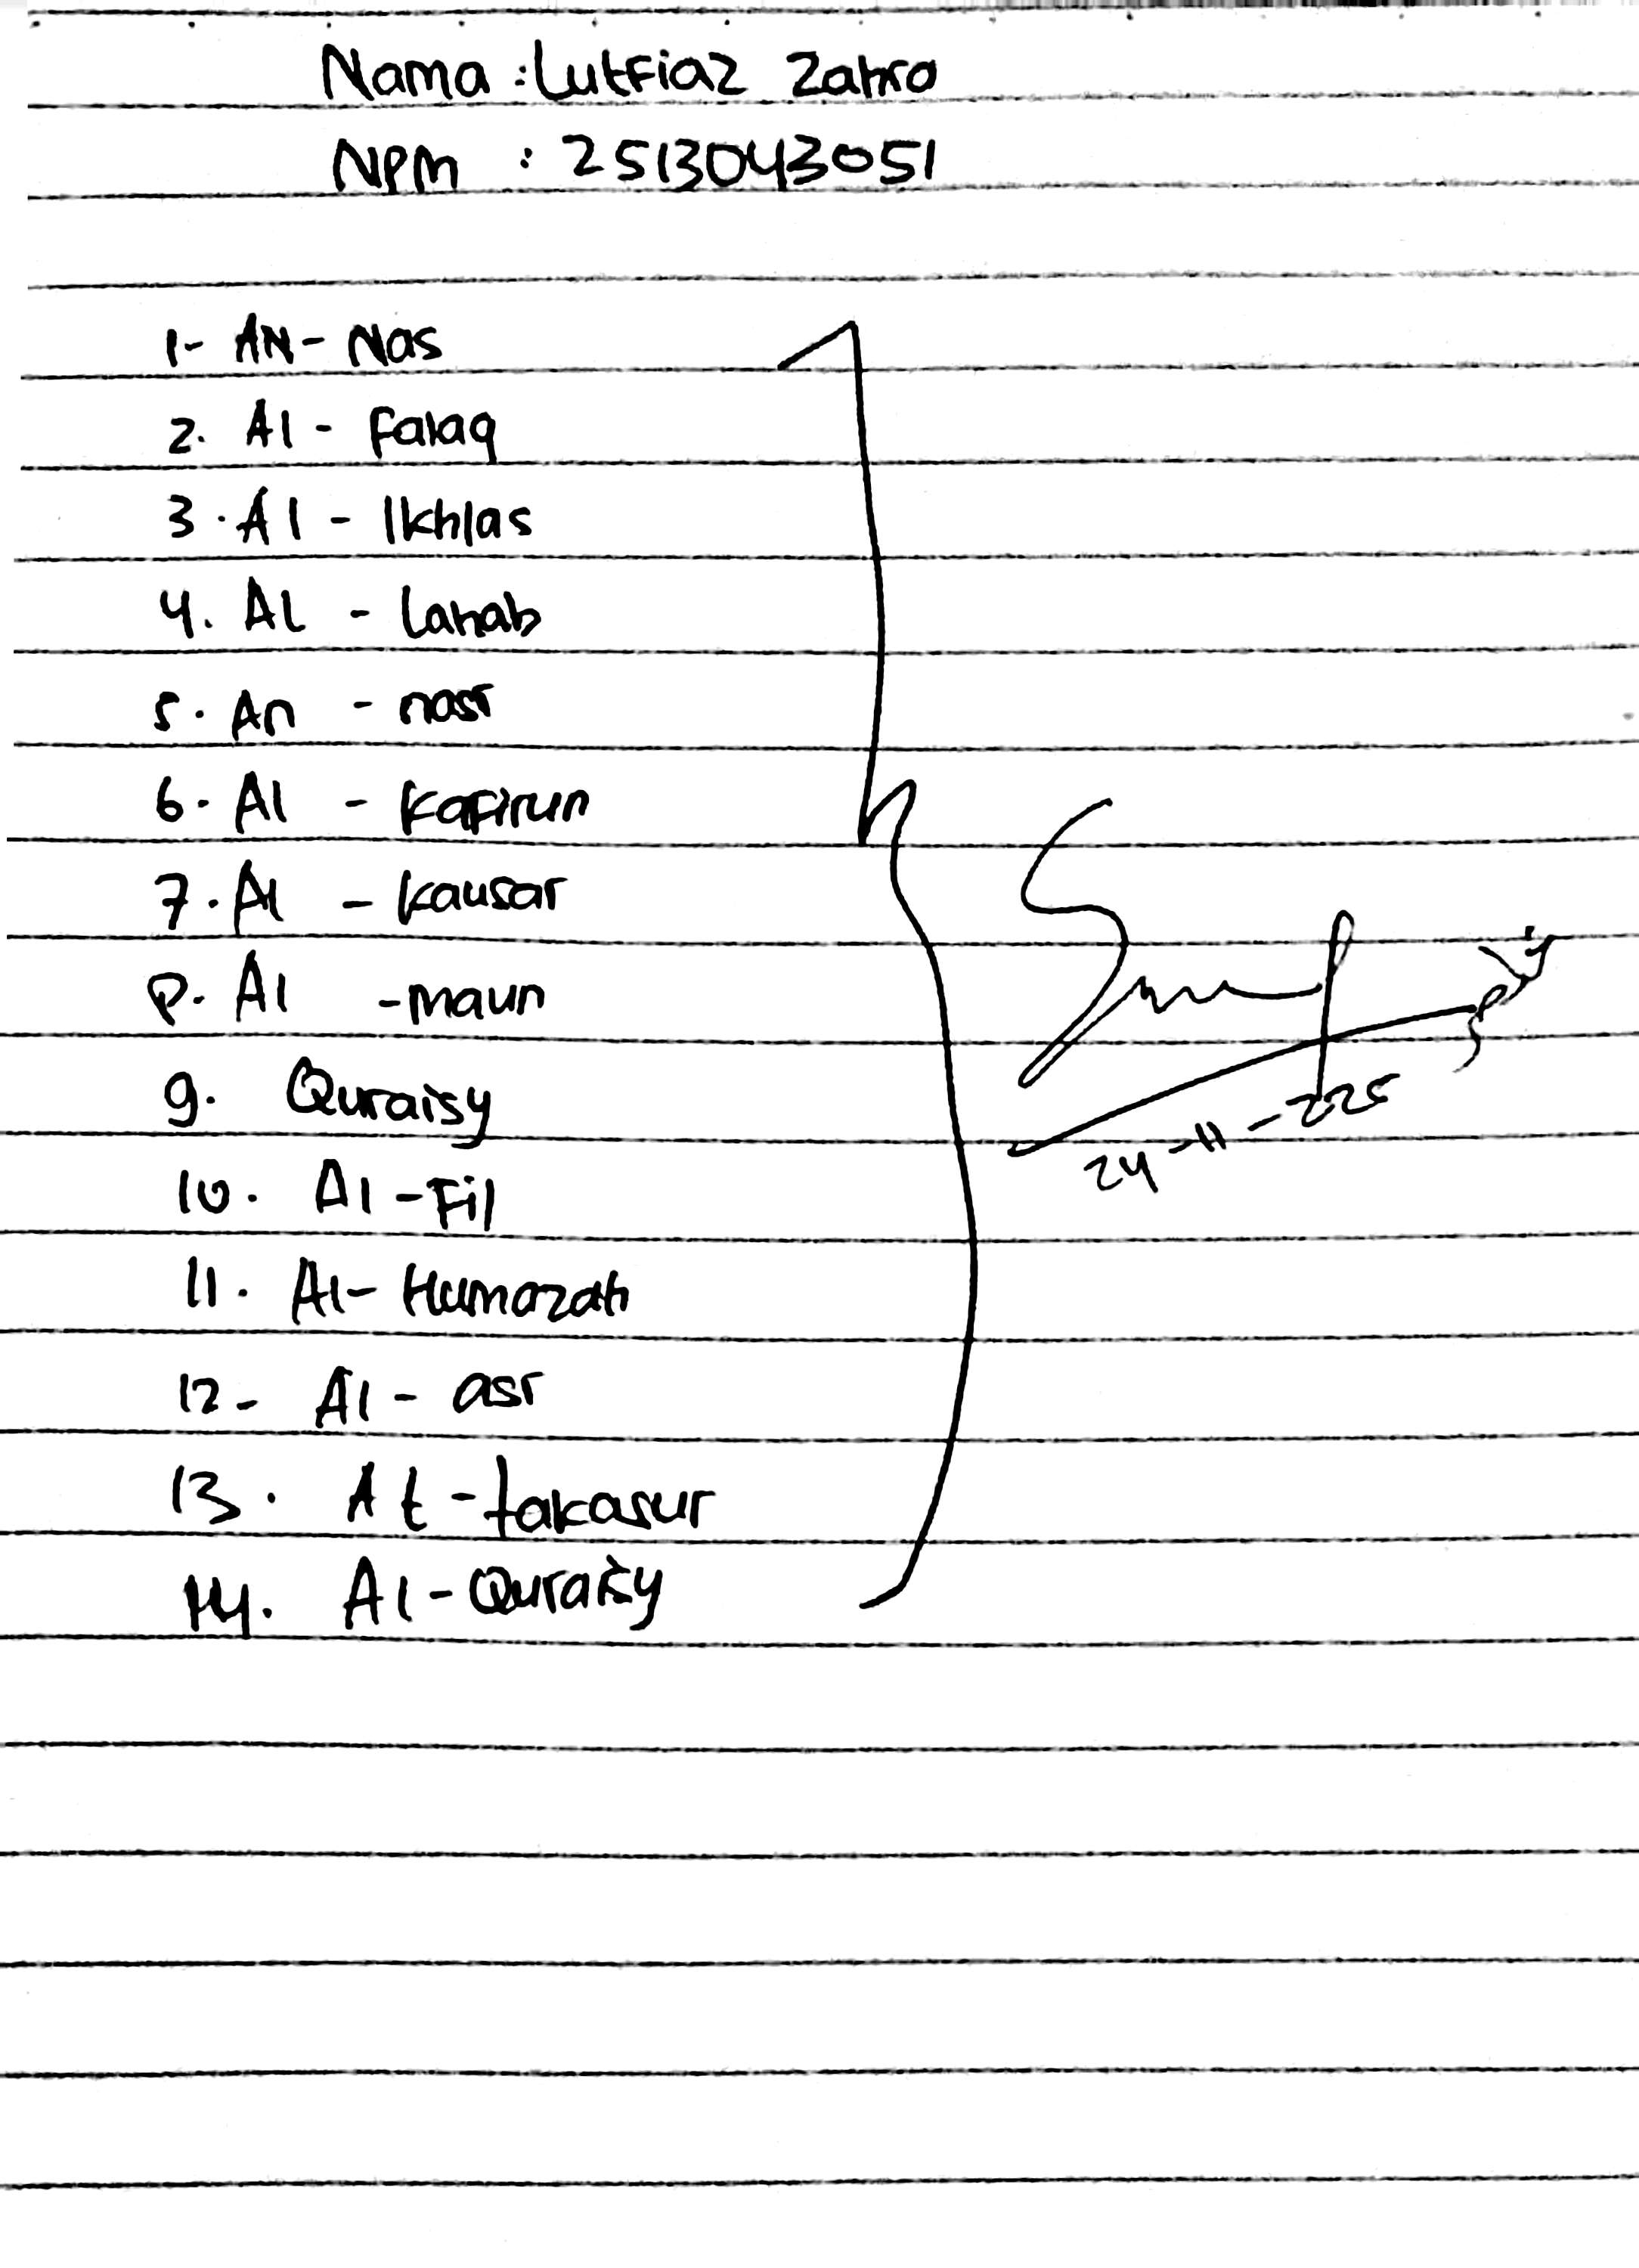 Nama : Lutfiaz Zahro
NPM : 2513043051
1- AN - Nas
2. Al - Falaq
3. Al - Ikhlas
4. AL - Lahab
5. An - nasr
6. Al - Kafirun
7. Al - Kausar
8. Al - maun
9. Quraisy
10. Al - Fil
11. Al - Humazah
12- Al - asr
13. At - takasur
14. Al - Quraisy
24-11-225